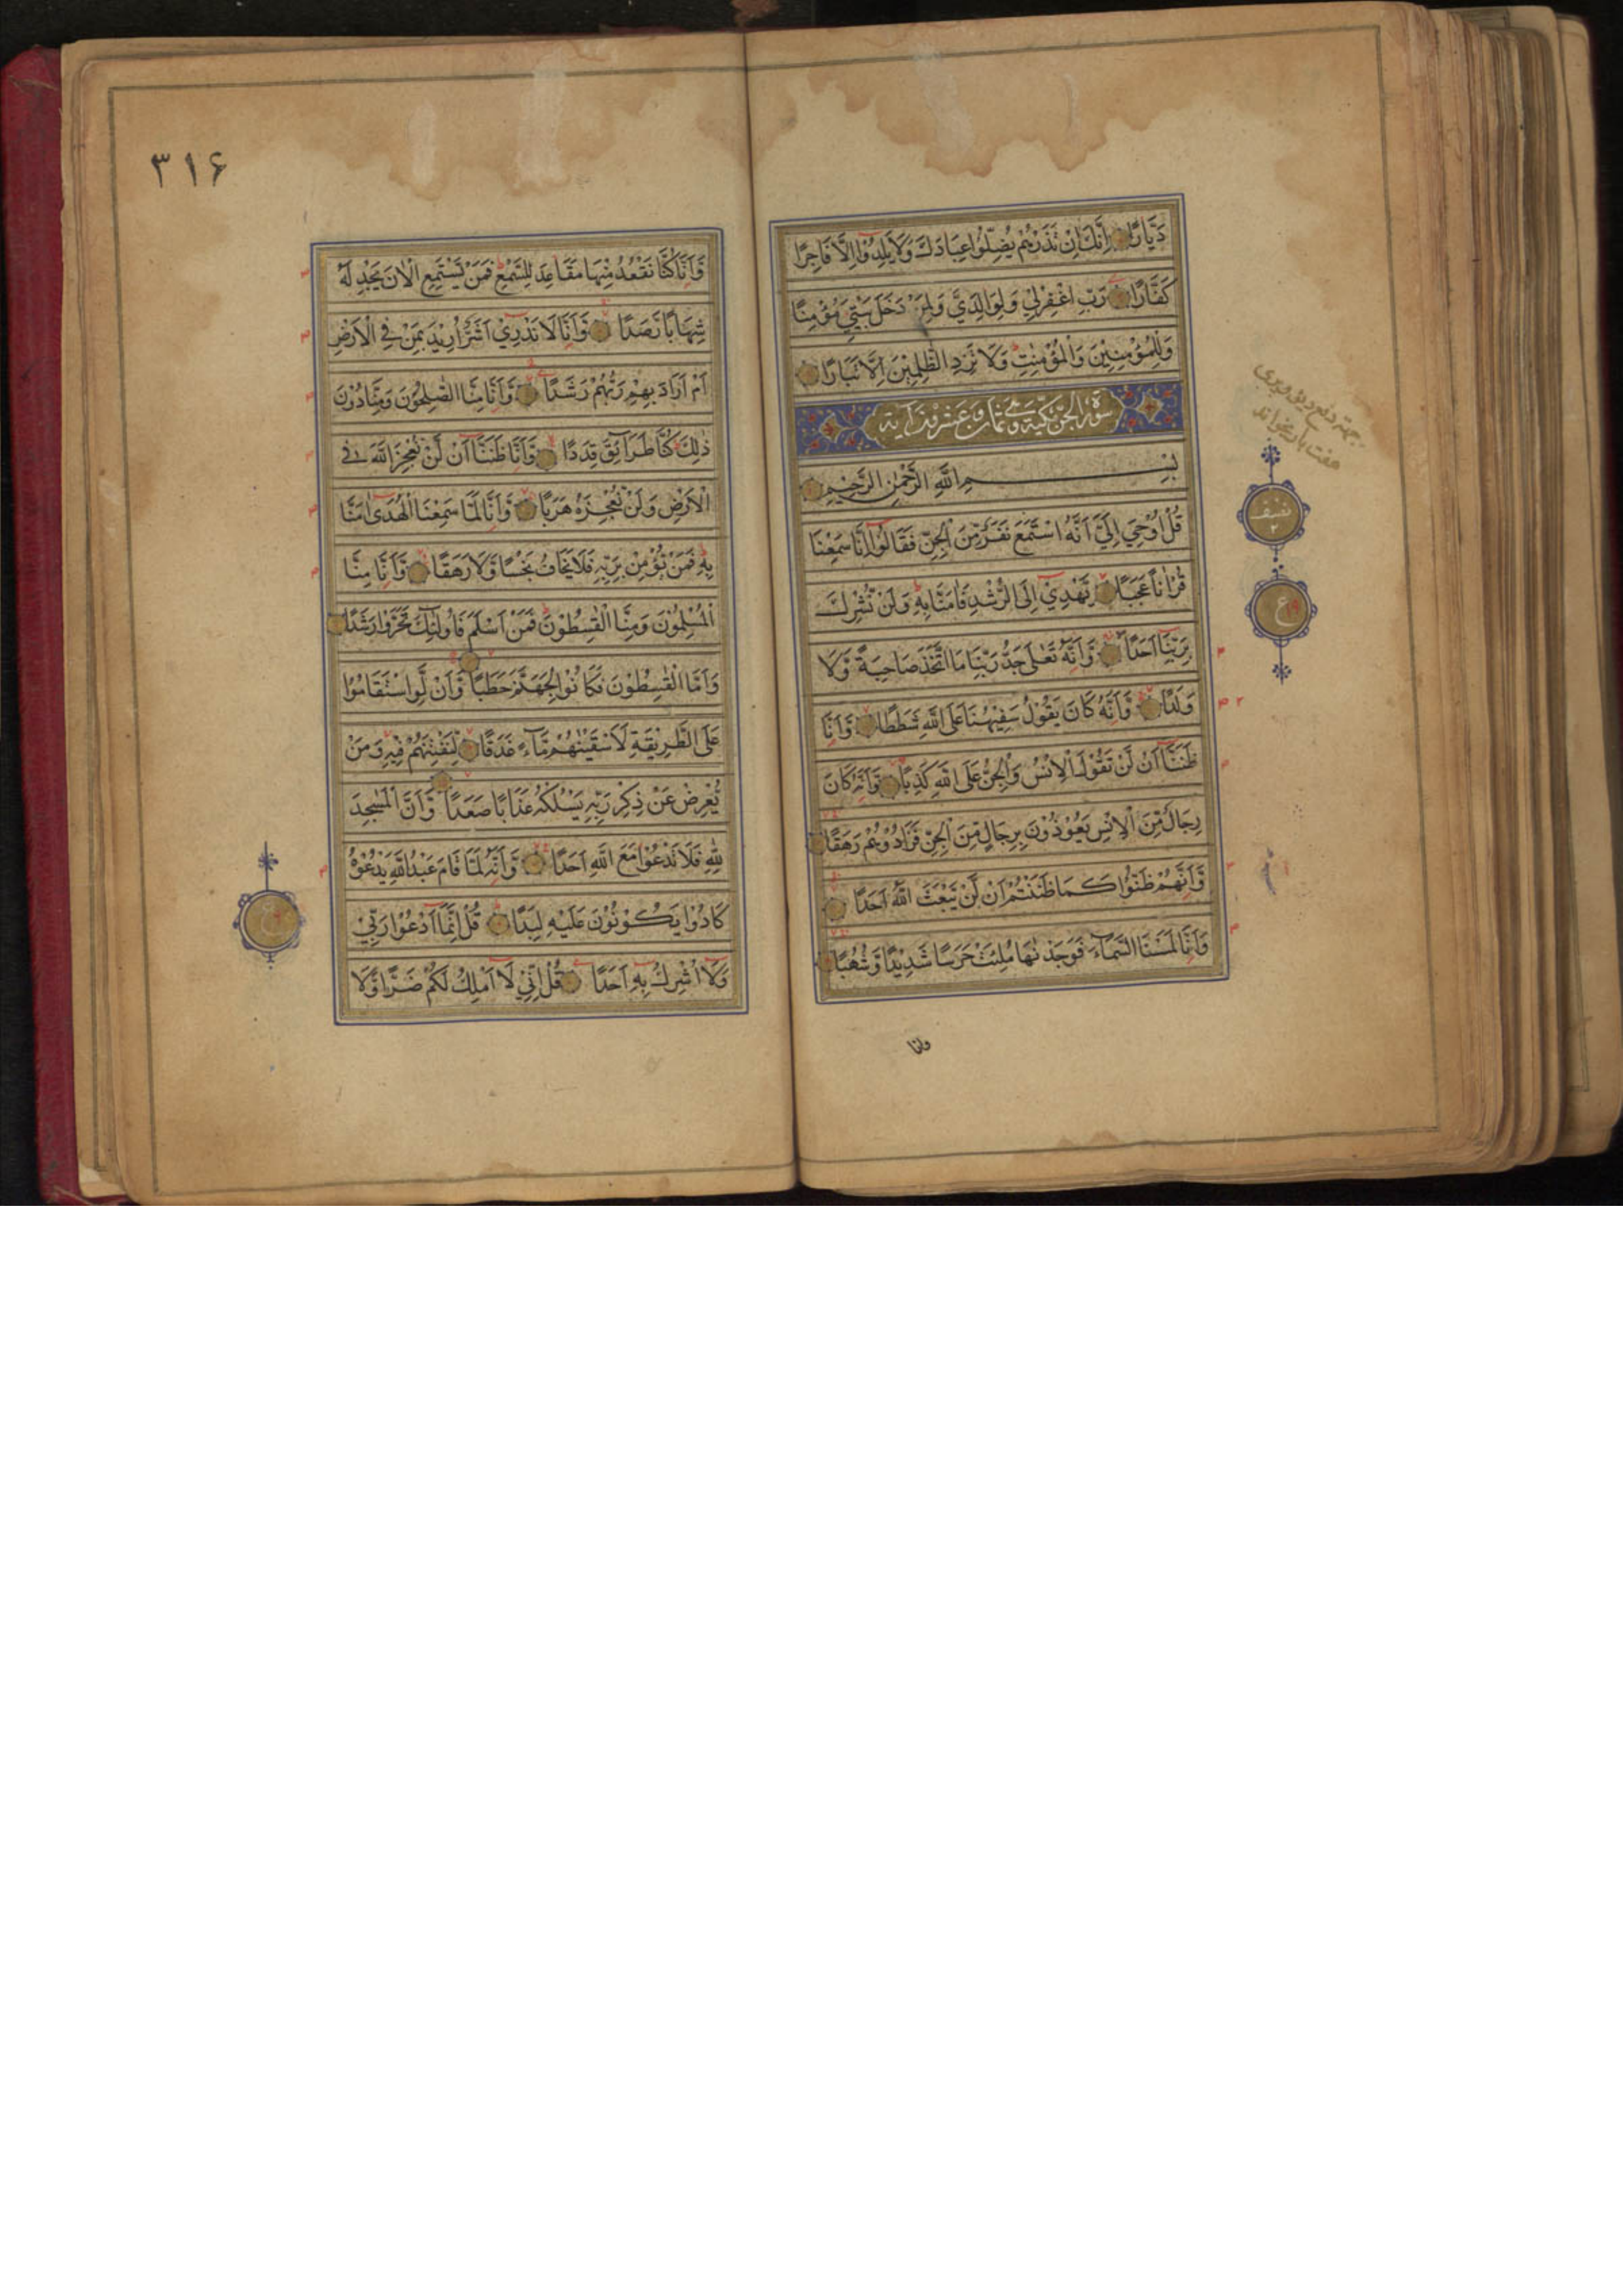 دَيَّارًا اِنَّكَ اِنْ تَذَرْهُمْ يُضِلُّوا عِبَادَكَ وَلَا يَلِدُوْا اِلَّا فَاجِرًا
كَفَّارًا رَبِّ اغْفِرْلِيْ وَلِوَالِدَيَّ وَلِمَنْ دَخَلَ بَيْتِيَ مُؤْمِنًا
وَلِلْمُؤْمِنِيْنَ وَالْمُؤْمِنٰتِ وَلَا تَزِدِ الظّٰلِمِيْنَ اِلَّا تَبَارًا
سورة الجن مكية وهي ثمان وعشرون آية
بِسْمِ اللّٰهِ الرَّحْمٰنِ الرَّحِيْمِ
قُلْ اُوْحِيَ اِلَيَّ اَنَّهُ اسْتَمَعَ نَفَرٌ مِّنَ الْجِنِّ فَقَالُوْا اِنَّا سَمِعْنَا
قُرْاٰنًا عَجَبًا يَهْدِيْ اِلَى الرُّشْدِ فَاٰمَنَّا بِهٖ وَلَنْ نُّشْرِكَ
بِرَبِّنَا اَحَدًا وَّاَنَّهٗ تَعٰلٰى جَدُّ رَبِّنَا مَا اتَّخَذَ صَاحِبَةً وَّلَا
وَلَدًا وَّاَنَّهٗ كَانَ يَقُوْلُ سَفِيْهُنَا عَلَى اللّٰهِ شَطَطًا وَّاَنَّا
ظَنَنَّا اَنْ لَّنْ تَقُوْلَ الْاِنْسُ وَالْجِنُّ عَلَى اللّٰهِ كَذِبًا وَّاَنَّهٗ كَانَ
رِجَالٌ مِّنَ الْاِنْسِ يَعُوْذُوْنَ بِرِجَالٍ مِّنَ الْجِنِّ فَزَادُوْهُمْ رَهَقًا
وَّاَنَّهُمْ ظَنُّوْا كَمَا ظَنَنْتُمْ اَنْ لَّنْ يَّبْعَثَ اللّٰهُ اَحَدًا
وَّاَنَّا لَمَسْنَا السَّمَآءَ فَوَجَدْنٰهَا مُلِئَتْ حَرَسًا شَدِيْدًا وَّشُهُبًا
وانا
نصف
٢
ع
٣١۶
وَّاَنَّا كُنَّا نَقْعُدُ مِنْهَا مَقَاعِدَ لِلسَّمْعِ فَمَنْ يَّسْتَمِعِ الْاٰنَ يَجِدْ لَهٗ
شِهَابًا رَّصَدًا وَّاَنَّا لَا نَدْرِيْ اَشَرٌّ اُرِيْدَ بِمَنْ فِي الْاَرْضِ
اَمْ اَرَادَ بِهِمْ رَبُّهُمْ رَشَدًا وَّاَنَّا مِنَّا الصّٰلِحُوْنَ وَمِنَّا دُوْنَ
ذٰلِكَ كُنَّا طَرَآئِقَ قِدَدًا وَّاَنَّا ظَنَنَّا اَنْ لَّنْ نُّعْجِزَ اللّٰهَ فِي
الْاَرْضِ وَلَنْ نُّعْجِزَهٗ هَرَبًا وَّاَنَّا لَمَّا سَمِعْنَا الْهُدٰى اٰمَنَّا
بِهٖ فَمَنْ يُّؤْمِنْ بِرَبِّهٖ فَلَا يَخَافُ بَخْسًا وَّلَا رَهَقًا وَّاَنَّا مِنَّا
الْمُسْلِمُوْنَ وَمِنَّا الْقٰسِطُوْنَ فَمَنْ اَسْلَمَ فَاُولٰئِكَ تَحَرَّوْا رَشَدًا
وَاَمَّا الْقٰسِطُوْنَ فَكَانُوْا لِجَهَنَّمَ حَطَبًا وَّاَنْ لَّوِ اسْتَقَامُوْا
عَلَى الطَّرِيْقَةِ لَاَسْقَيْنٰهُمْ مَّآءً غَدَقًا لِّنَفْتِنَهُمْ فِيْهِ وَمَنْ
يُّعْرِضْ عَنْ ذِكْرِ رَبِّهٖ يَسْلُكْهُ عَذَابًا صَعَدًا وَّاَنَّ الْمَسٰجِدَ
لِلّٰهِ فَلَا تَدْعُوْا مَعَ اللّٰهِ اَحَدًا وَّاَنَّهٗ لَمَّا قَامَ عَبْدُ اللّٰهِ يَدْعُوْهُ
كَادُوْا يَكُوْنُوْنَ عَلَيْهِ لِبَدًا قُلْ اِنَّمَا اَدْعُوْا رَبِّيْ
وَلَا اُشْرِكُ بِهٖ اَحَدًا قُلْ اِنِّيْ لَا اَمْلِكُ لَكُمْ ضَرًّا وَّلَا